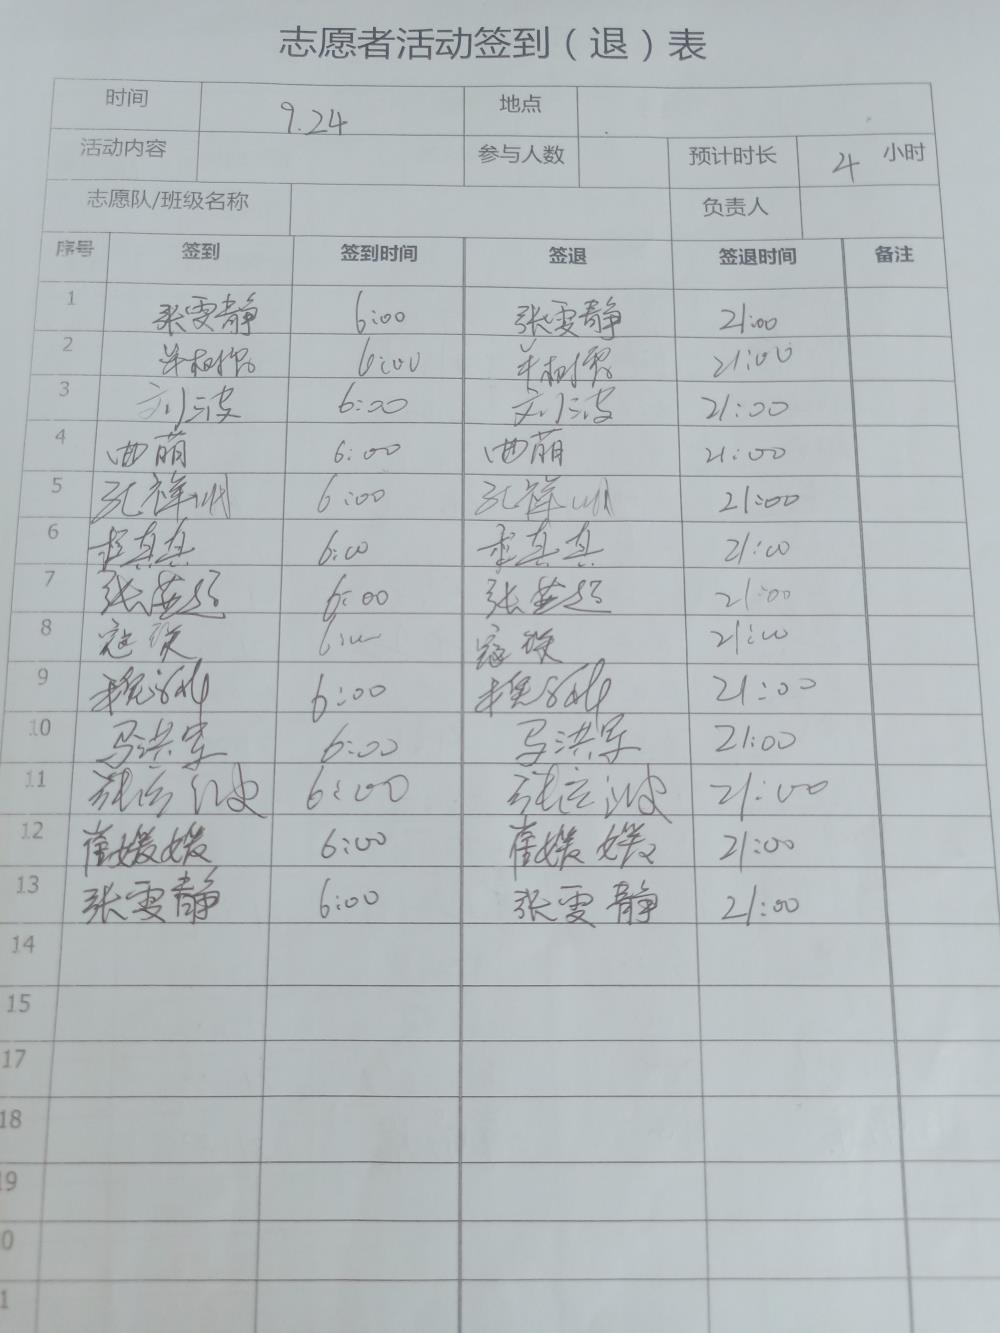 志愿者活动签到（退）表
时间 9.24 地点
活动内容 参与人数 预计时长 4 小时
志愿队/班级名称 负责人
序号 签到 签到时间 签退 签退时间 备注
1 张雯静 6:00 张雯静 21:00
2 6:00 21:00
3 刘波 6:00 刘波 21:00
4 曲萌 6:00 曲萌 21:00
5 6:00 21:00
6 李真真 6:00 李真真 21:00
7 张 6:00 张 21:00
8 寇 6:00 寇 21:00
9 6:00 21:00
10 马洪军 6:00 马洪军 21:00
11 6:00 21:00
12 崔媛媛 6:00 崔媛媛 21:00
13 张雯静 6:00 张雯静 21:00
14
15
17
18
19
0
1